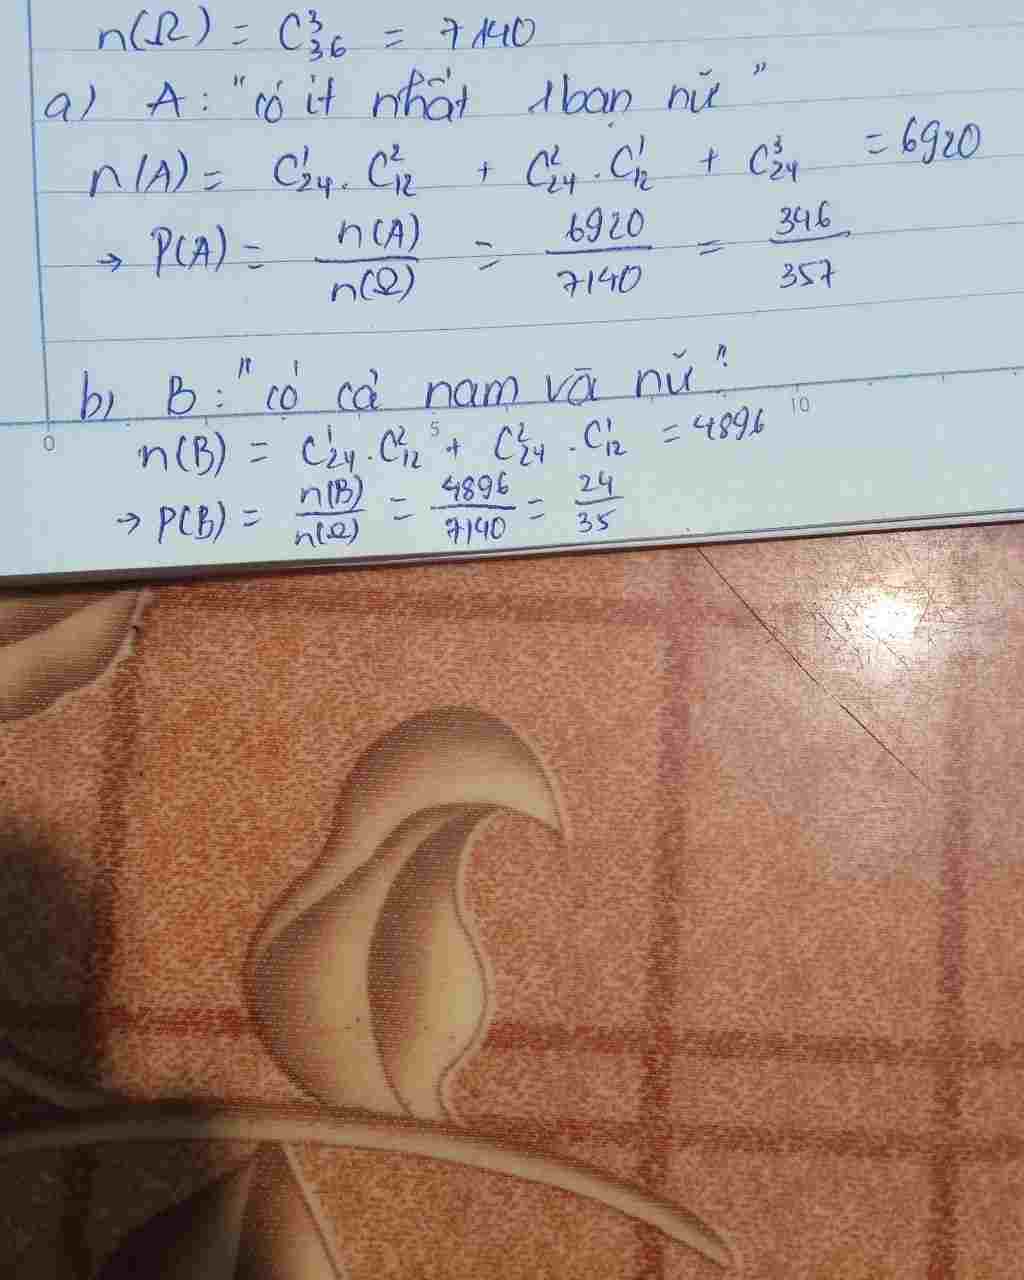 n(Ω) = C³₃₆ = 7140
a) A: "có ít nhất 1 bạn nữ"
n(A) = C¹₂₄ . C²₁₂ + C²₂₄ . C¹₁₂ + C³₂₄ = 6920
→ P(A) = n(A)/n(Ω) = 6920/7140 = 346/357
b) B: "có cả nam và nữ"
0 5 10
n(B) = C¹₂₄ . C²₁₂ + C²₂₄ . C¹₁₂ = 4896
→ P(B) = n(B)/n(Ω) = 4896/7140 = 24/35